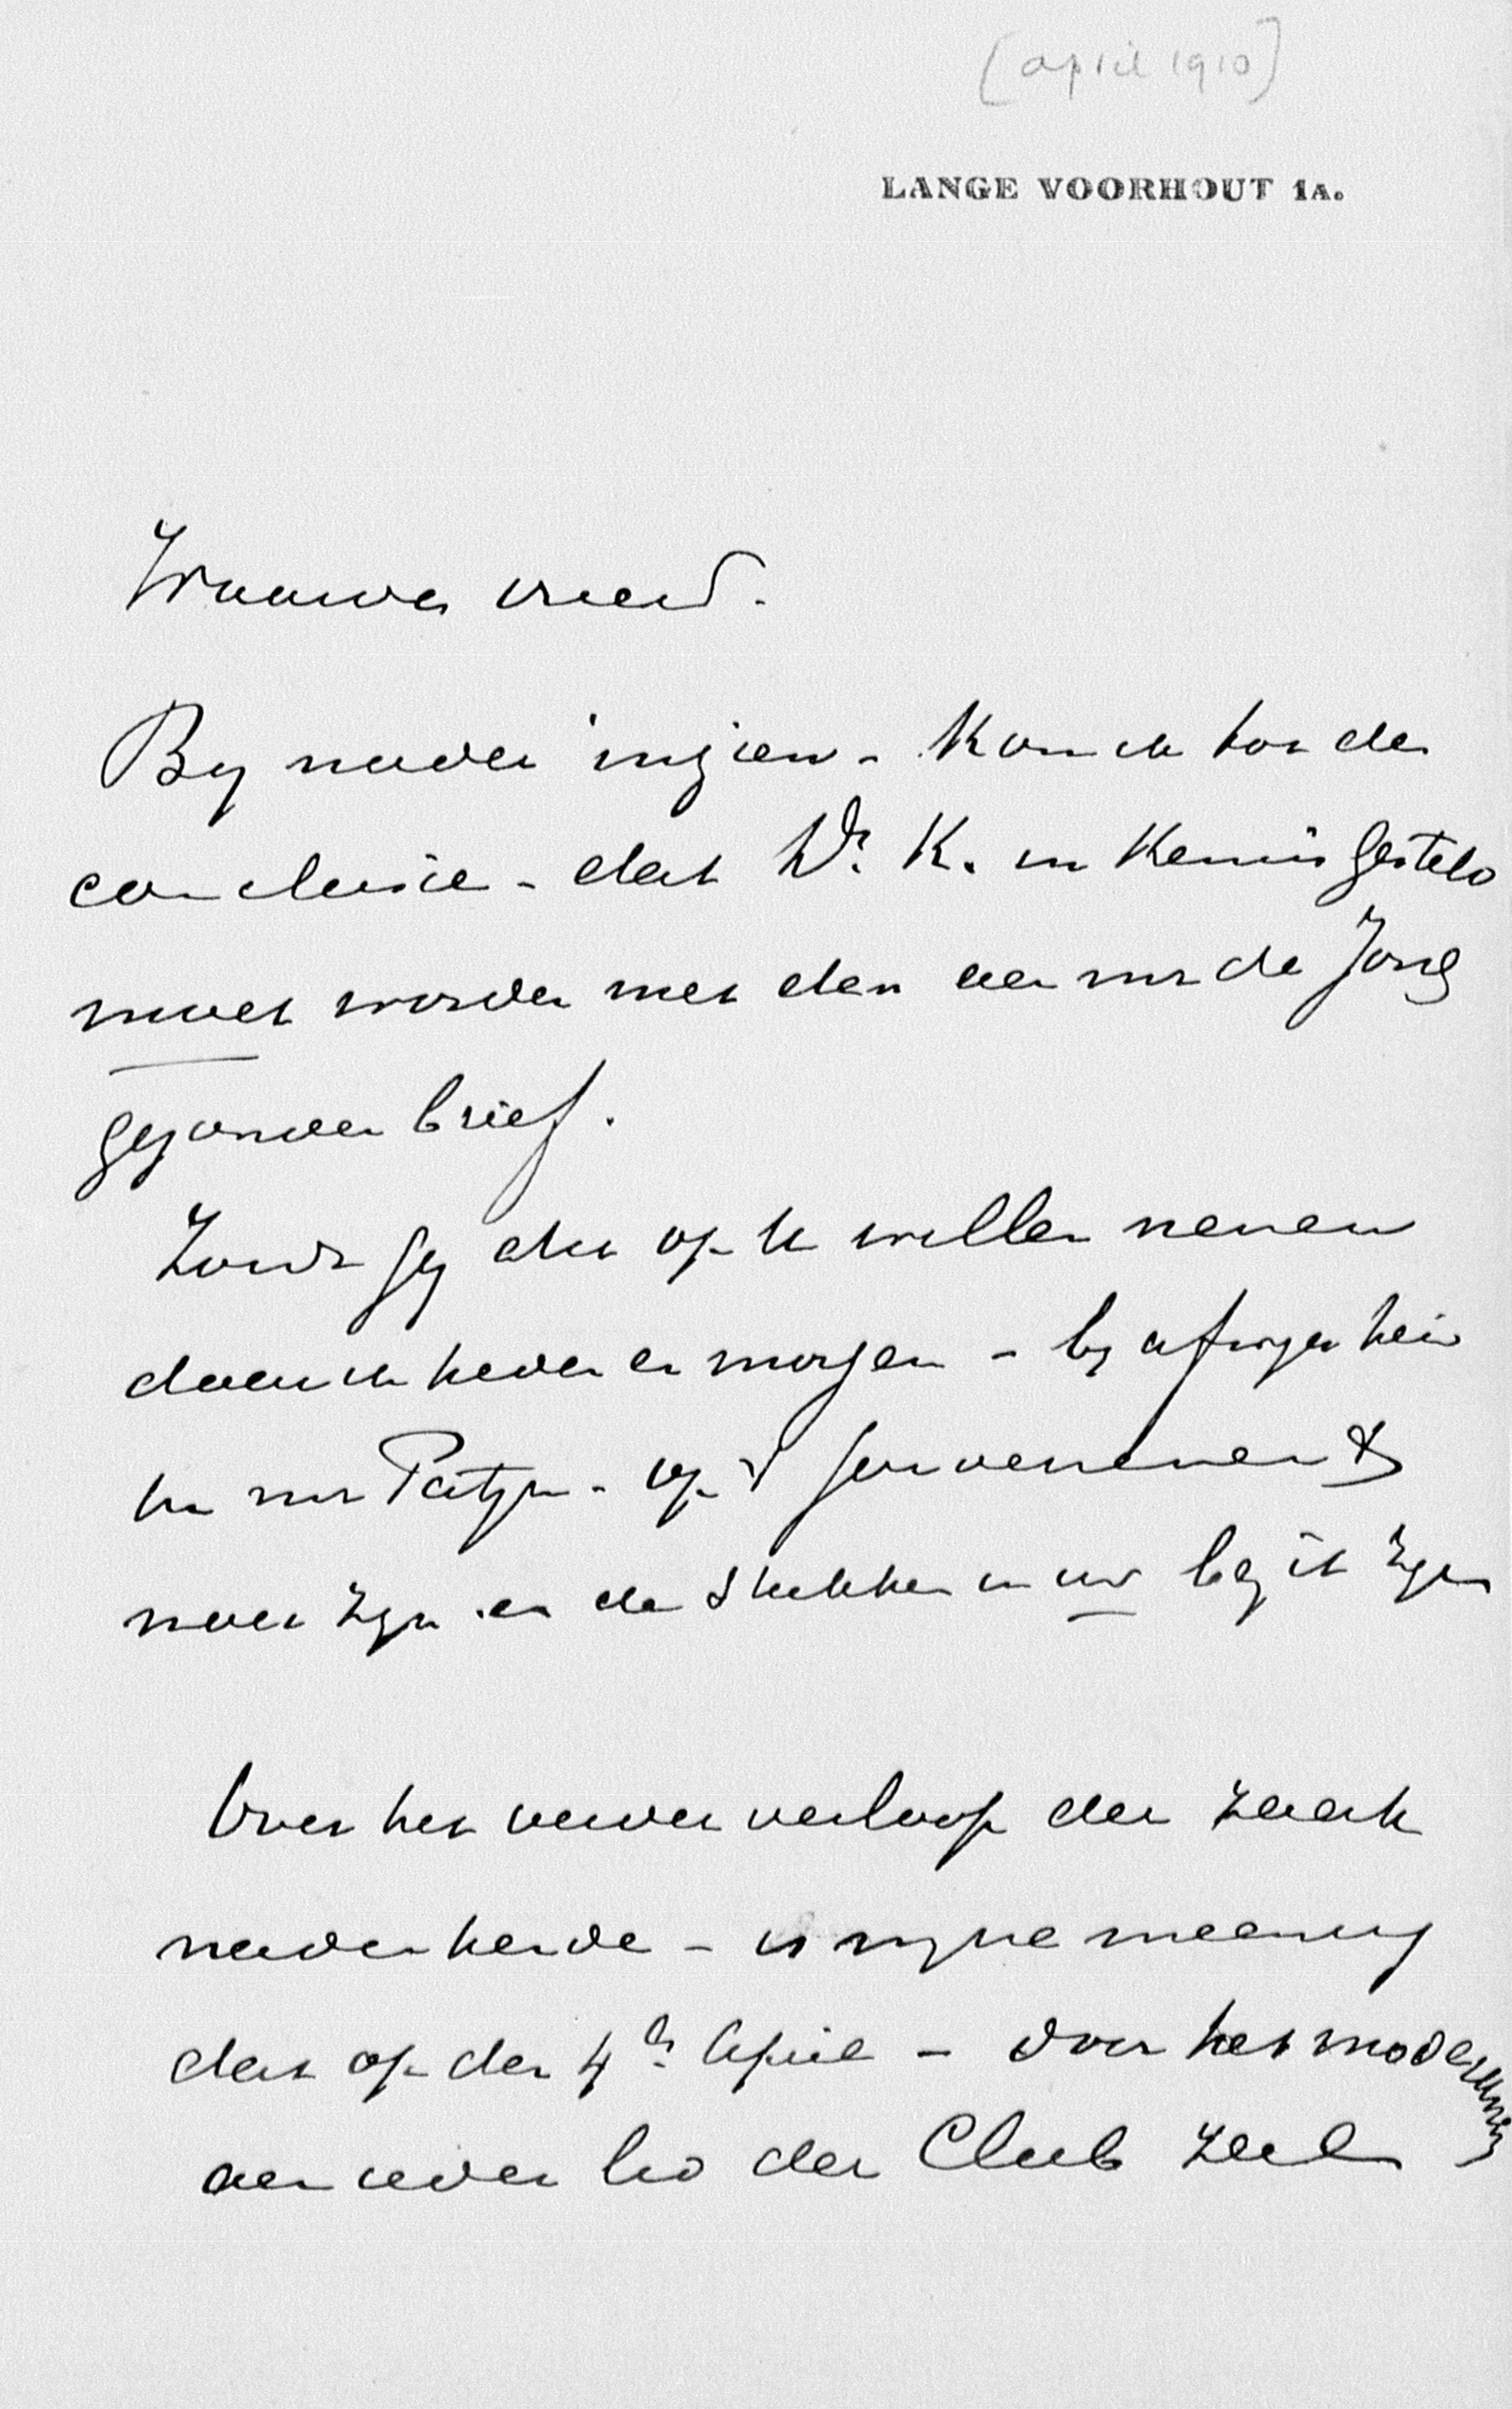 [april 1910]
LANGE VOORHOUT 1A.
Waarde vriend.
By nader inzien - kom ik tot de
conclusie - dat Dr. K. in kennis gesteld
moet worden met den aan mr de Jong
gezonden brief.
Zoudt gy dit op U willen nemen
daar ik heden en morgen - by afwezigheid
van mr Patijn - op 't Gouvernement
moet zyn en de stukken in uw bezit zyn
Over het verder verloop der zaak
nadenkende - is myne meening
dat op den 4en April - door het moderamen
aan ieder lid der Club zal